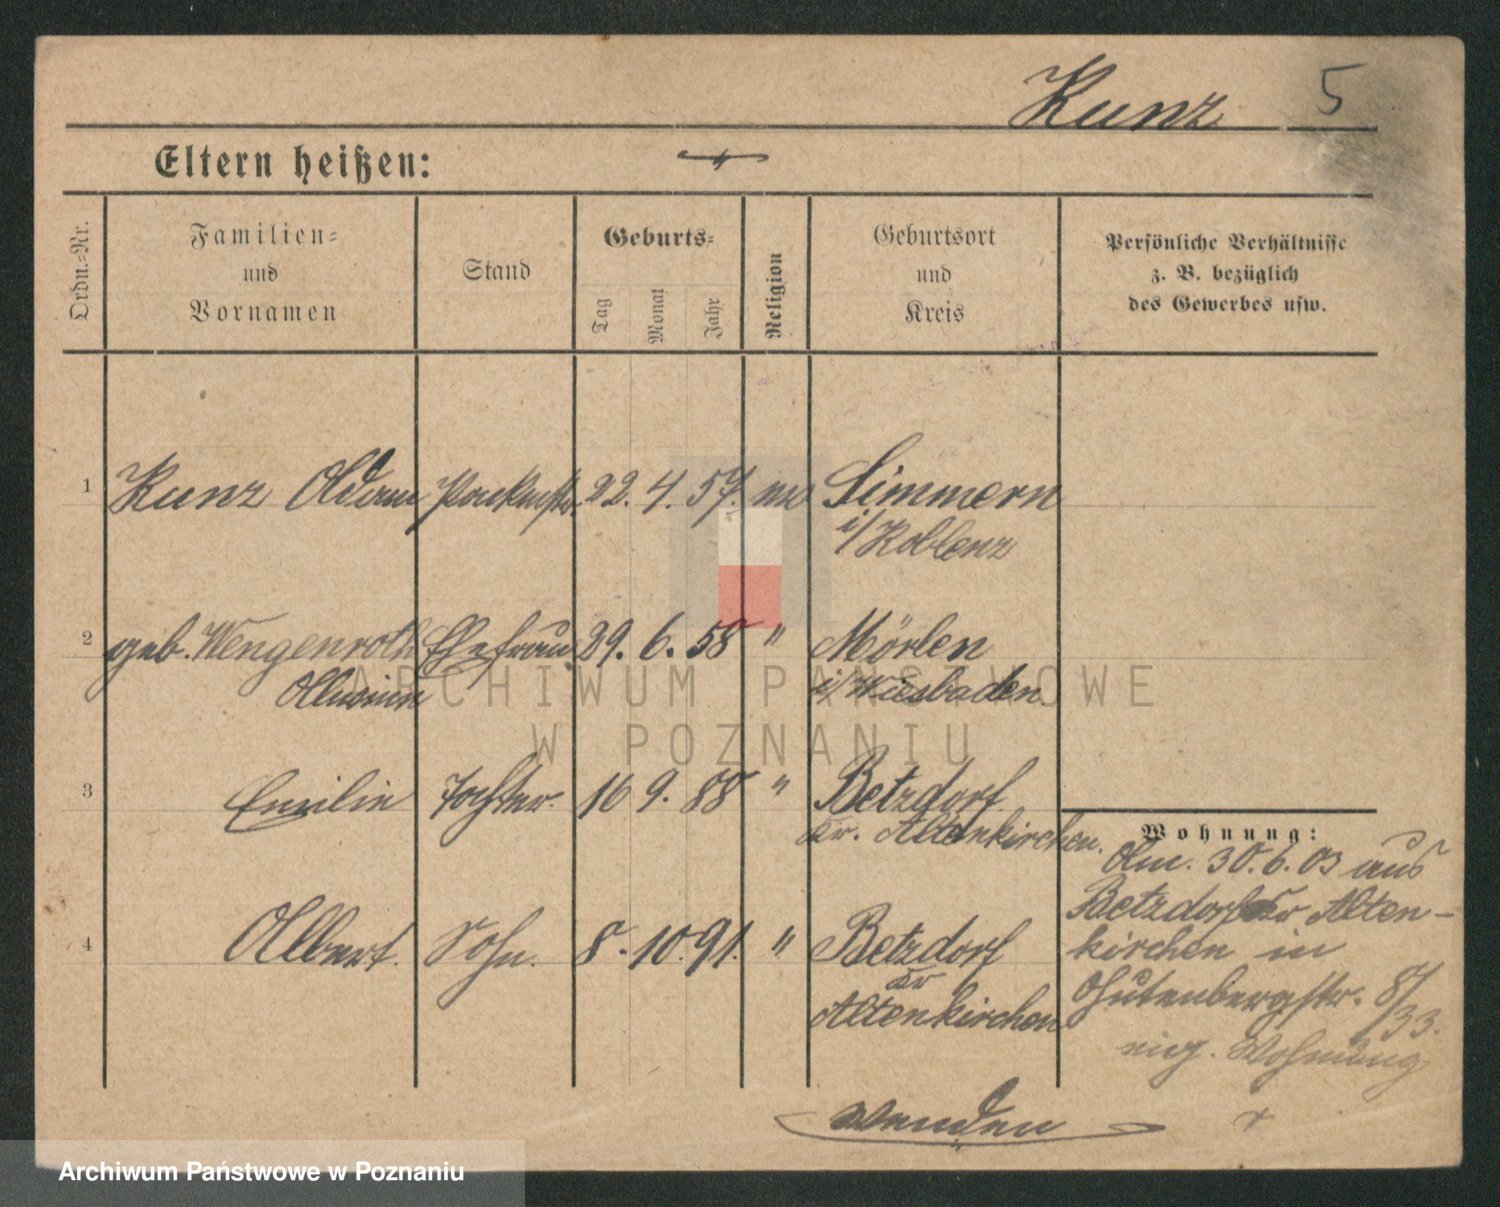 Kunz 5
Eltern heißen:
Ordn.-Nr.
Familien-
und
Vornamen
Stand
Geburts-
Tag
Monat
Jahr
Religion
Geburtsort
und
Kreis
Persönliche Verhältnisse
z. B. bezüglich
des Gewerbes usw.
1 Kunz Adam Packmstr. 22. 4. 57. Simmern
i/Koblenz
2 geb. Wengenroth Ehefrau 29. 6. 58 " Mörlen
i/Wiesbaden
3 Emilie Tochter. 16 9. 88 " Betzdorf
Kr. Altenkirchen.
4 Albert. Sohn. 8. 10. 91. " Betzdorf
Kr
Altenkirchen
Wohnung:
Am. 30.6.03 aus
Betzdorf Kr Alten-
kirchen in
Gutenbergstr. 8/33.
eig. Wohnung
Wenden
ARCHIWUM PAŃSTWOWE
W POZNANIU
Archiwum Państwowe w Poznaniu